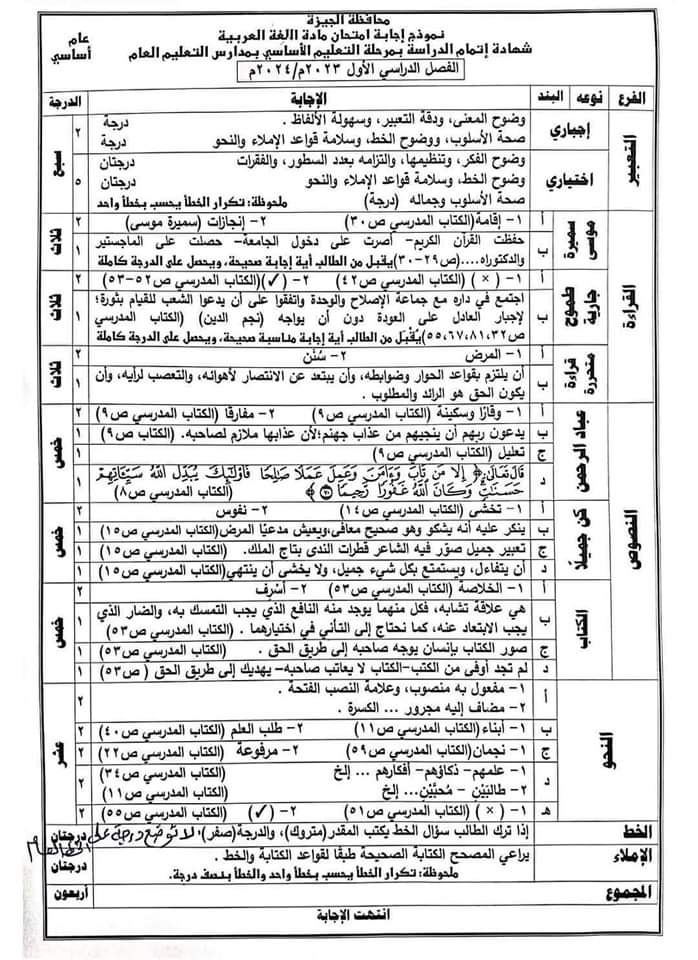 محافظة الجيزة
نموذج إجابة امتحان مادة اللغة العربية
شهادة إتمام الدراسة بمرحلة التعليم الأساسي بمدارس التعليم العام
عام
أساسي
الفصل الدراسي الأول ٢٠٢٣م/٢٠٢٤م
الفرع نوعه البند الإجابة الدرجة
التعبير
إجباري
وضوح المعنى، ودقة التعبير، وسهولة الألفاظ . درجة
صحة الأسلوب، ووضوح الخط، وسلامة قواعد الإملاء والنحو درجة
٢
سبع
اختياري
وضوح الفكر، وتنظيمها، والتزامه بعدد السطور، والفقرات درجتان
وضوح الخط، وسلامة قواعد الإملاء والنحو درجتان
صحة الأسلوب وجماله (درجة) ملحوظة: تكرار الخطأ يحسب بخطأ واحد
٥
القراءة
سميرة موسى
أ ١- إقامة(الكتاب المدرسي ص٣٠) ٢- إنجازات (سميرة موسى) ٢
ب حفظت القرآن الكريم- أصرت على دخول الجامعة- حصلت على الماجستير
والدكتوراه....(ص٢٩-٣٠)يقبل من الطالب أية إجابة صحيحة، ويحصل على الدرجة كاملة ١
ثلاث
طموح جارية
أ ١- (×) (الكتاب المدرسي ص٤٢) ٢- (✓)(الكتاب المدرسي ص٥٢-٥٣) ٢
ب اجتمع في داره مع جماعة الإصلاح والوحدة واتفقوا على أن يدعوا الشعب للقيام بثورة؛
لإجبار العادل على العودة دون أن يواجه (نجم الدين) (الكتاب المدرسي
ص٥٥،٦٧،٨١،٣٢)يُقْبَل من الطالب أية إجابة مناسبة صحيحة، ويحصل على الدرجة كاملة ١
ثلاث
قراءة متحررة
أ ١- المرض ٢- سُنَن ٢
ب أن يلتزم بقواعد الحوار وضوابطه، وأن يبتعد عن الانتصار لأهوائه، والتعصب لرأيه، وأن
يكون الحق هو الرائد والمطلوب . ١
ثلاث
النصوص
عباد الرحمن
أ ١- وقارًا وسكينة (الكتاب المدرسي ص٩) ٢- مفارقا (الكتاب المدرسي ص٩) ٢
ب يدعون ربهم أن ينجيهم من عذاب جهنم؛لأن عذابها ملازم لصاحبه. (الكتاب ص٩) ١
ج تعليل (الكتاب المدرسي ص٩) ١
د قَالَ تَعَالَىٰ: ﴿إِلَّا مَن تَابَ وَءَامَنَ وَعَمِلَ عَمَلًا صَٰلِحًا فَأُوْلَٰٓئِكَ يُبَدِّلُ ٱللَّهُ سَيِّـَٔاتِهِمْ
حَسَنَٰتٍ وَكَانَ ٱللَّهُ غَفُورًا رَّحِيمًا ۝٧٠﴾ (الكتاب المدرسي ص٨) ١
خمس
كن جميلًا
أ ١- تخشى (الكتاب المدرسي ص١٤) ٢- نفوس ٢
ب ينكر عليه أنه يشكو وهو صحيح معافى،ويعيش مدعيًا المرض(الكتاب المدرسي ص١٥) ١
ج تعبير جميل صوّر فيه الشاعر قطرات الندى بتاج الملك. (الكتاب المدرسي ص١٥) ١
د أن يتفاءل، ويستمتع بكل شيء جميل، ولا يخشى أن ينتهي(الكتاب المدرسي ص١٥) ١
خمس
الكتاب
أ ١- الخلاصة (الكتاب المدرسي ص٥٣) ٢- أَسْرِف ٢
ب هي علاقة تشابه، فكل منهما يوجد منه النافع الذي يجب التمسك به، والضار الذي
يجب الابتعاد عنه، كما نحتاج إلى التأني في اختيارهما . (الكتاب المدرسي ص٥٣) ١
ج صور الكتاب بإنسان يوجه صاحبه إلى طريق الحق . (الكتاب المدرسي ص٥٣) ١
د لم تجد أوفى من الكتب-الكتاب لا يعاتب صاحبه- يهديك إلى طريق الحق ( ص٥٣) ١
خمس
النحو
أ ١- مفعول به منصوب، وعلامة النصب الفتحة .
٢- مضاف إليه مجرور ... الكسرة . ٢
ب ١- أبناء(الكتاب المدرسي ص١١) ٢- طلب العلم (الكتاب المدرسي ص٤٠) ٢
ج ١- نجمان(الكتاب المدرسي ص٥٩) ٢- مرفوعة (الكتاب المدرسي ص٢٢) ٢
د ١- علمهم- ذكاؤهم- أفكارهم ... إلخ (الكتاب المدرسي ص٣٤)
٢- طالبَيْنِ - مُحبَّيْنِ... إلخ (الكتاب المدرسي ص١١) ٢
هـ ١- (×) (الكتاب المدرسي ص٥١) ٢- (✓) (الكتاب المدرسي ص٥٥) ٢
عشر
الخط إذا ترك الطالب سؤال الخط يكتب المقدر(متروك)، والدرجة(صفر). لا توضع درجة على درجتان
الإملاء يراعي المصحح الكتابة الصحيحة طبقًا لقواعد الكتابة والخط .
ملحوظة: تكرار الخطأ يحسب بخطأ واحد والخطأ بنصف درجة. درجتان
المجموع أربعون
انتهت الإجابة